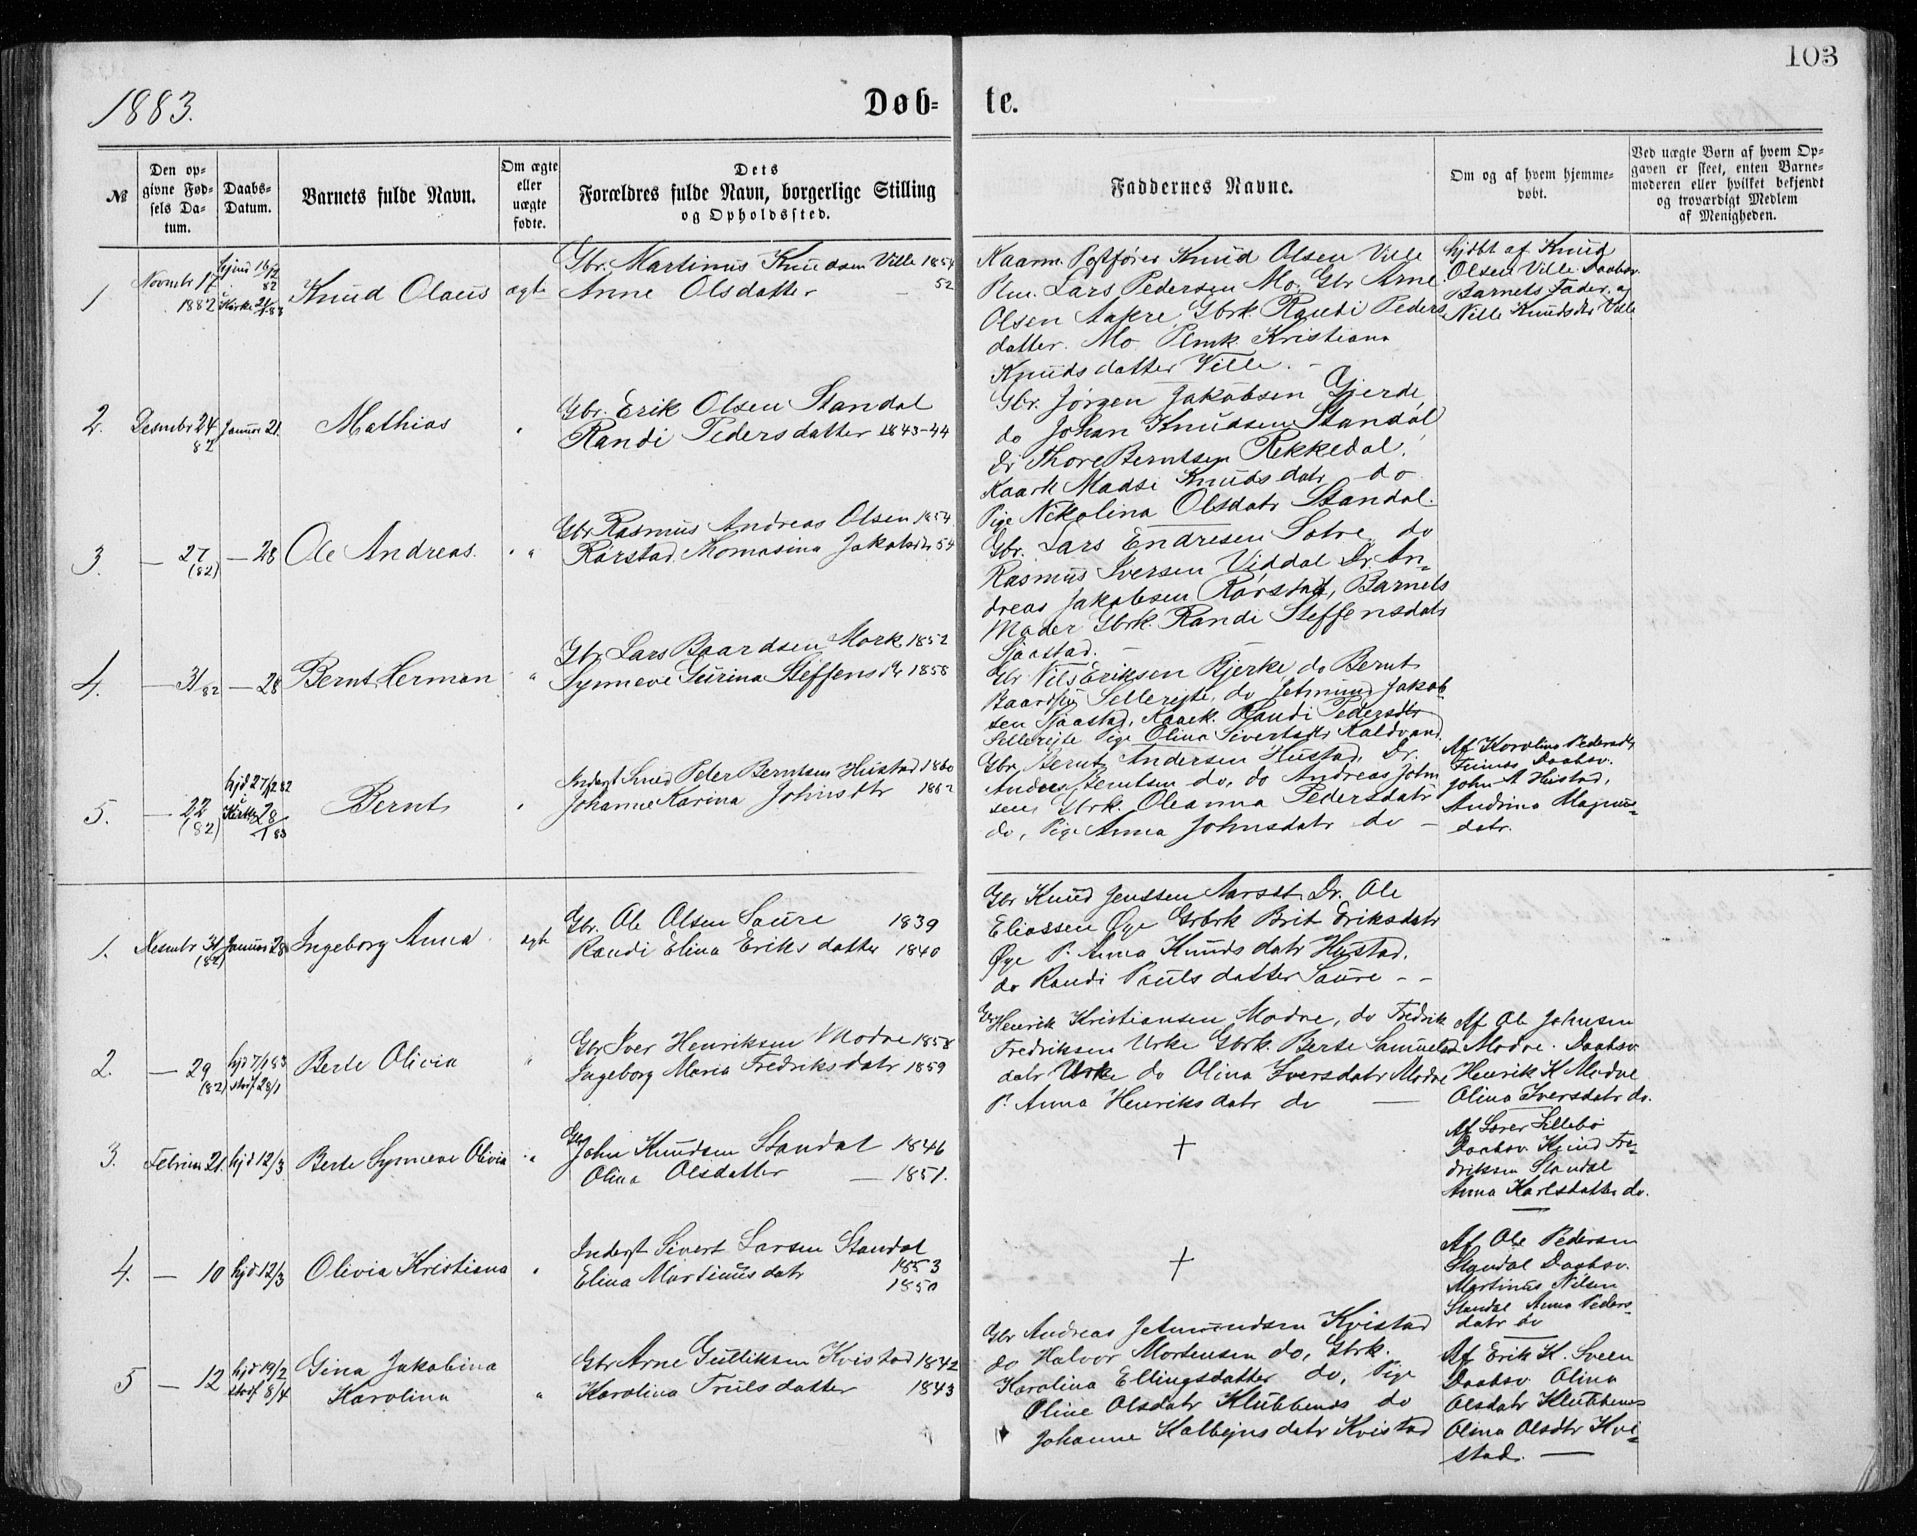 103
1883.
Døb-
te.
№
Den op-
givne Fød-
sels Da-
tum.
Daabs-
Datum.
Barnets fulde Navn.
Om ægte
eller
uægte
fødte.
Dets
Forældres fulde Navn, borgerlige Stilling
og Opholdssted.
Faddernes Navne.
Om og af hvem hjemme-
døbt.
Ved uægte Børn af hvem Op-
gaven er skeet, enten Barne-
moderen eller hvilket bekjendt
og troværdigt Medlem
af Menigheden.
1
17
1882
Knud Olaus
ægte
Gbr. Martinus Knudsen Ville 1854
Anne Olsdatter 52
Knud Olsen Ville
Lars Pedersen Mo, Gbr Arne
Olsen Aakre, Gbrk. Randi Peders
datter. Mo Kristiana
Knudsdatter Ville.
hjdbt af Knud
Olsen Ville. Daabsv.
Barnets Fader, og
Knudsdtr Ville
2.
Desembr 24
82
Januar 21.
Mathias
Gbr. Erik Olsen Standal
Randi Pedersdatter 1843-44
Gbr. Jørgen Jakobsen Gjerde,
do Johan Knudsen Standal
Thore Berntsen Rekkedal,
Knudsdatr do
Pige Nikolina Olsdatr Standal.
3.
— 27
(82)
— 28
Ole Andreas.
Gbr Rasmus Andreas Olsen 1854
Rørstad, Thomasina Jakobsdtr 54
Gbr. Lars Endresen Sætre, do
Rasmus Iversen Viddal Dr. An-
dreas Jakobsen Rørstad, Barnets
Moder Gbrk. Randi Steffensdatr
Sjaastad. —
4.
— 31/82
— 28
Bernt Herman
Gbr Lars Baardsen Mork 1852
Synneve Gurina Steffensdtr 1858
Gbr Nils Eriksen Bjerke, do Bernt
do Jetmund Jakob-
sen Sjaastad, Randi Pedersdtr
Pige Olina Sivertsdtr Kaldvand
5.
— 22
(82)
hjd. 27/12 82
Kirke 28
/1 83
Bernt
Inderst Smed Peter Berntsen Hustad 1860
Johanne Karina Johnsdtr
Gbr. Bernt Andersen Hustad, Dr.
Anders Berntsen do, do Andreas John
sen, Gbrk. Oleanna Pedersdatr
do, Pige Anna Johnsdatr do —
Af Karolina Pedersdtr
Daabsv.
John A Hustad,
Andrina Magnus-
datr.
1.
Desembr 31
(82)
Januar 28
Ingeborg Anna
ægte
Gbr. Ole Olsen Saure 1839
Randi Elina Eriksdatter 1840
Gbr Knud Jenssen Aarset, Dr. Ole
Eliassen Øye Gbrk Brit Eriksdatr
Øye P. Anna Knudsdatr Hustad.
do Randi Paulsdatter Saure - -
2.
— 29
(82)
hjd 7/1 83
stadf 28/1
Berte Olivia
Gbr Iver Henriksen Modve 1858
Ingeborg Maria Fredriksdatr 1859
Gbr Henrik Kristiansen Modve, do Fredrik
Fredriksen Urke Gbrk. Berte Samuels
datr Urke do Olina Iversdatr Modve
P. Anna Henriksdatr do —
Af Ole Johnsen
Modve. Daabsv.
Henrik K Modve
Olina Iversdatr do.
3.
Februar 21.
hjd 12/3
Berte Synneve Olivia
Gbr John Knudsen Standal 1846
Olina Olsdatter — 1851.
+
Af Lærer Lillebø
Daabsv. Knud Fre-
driksen Standal
Anna Karlsdatter do.
4.
— 10
hjd 12/3
Olivia Kristiana
Inderst Sivert Larsen Standal
1853
Elina Martinusdatr
1850
+
Af Ole Pedersen
Standal Daabsv.
Martinus Nilsen
Standal Anna Peders-
datr do
5
— 12
hjd 19/2
stadf 8/4
Gina Jakobina
Karolina
Gbr Arne Gulliksen Kvistad 1842
Karolina Trulsdatter 1843
Gbr Andreas Jetmundsen Kvistad
do Halvor Mortensen do, Gbrk.
Karolina Ellingsdatter do, Pige
Oline Olsdatr Klubbenes do
Johanne Kvistad
Af Erik K. Sveen
Daabsv Olina
Olsdatr Klubbenes
Olina Olsdtr Kvi-
stad. —